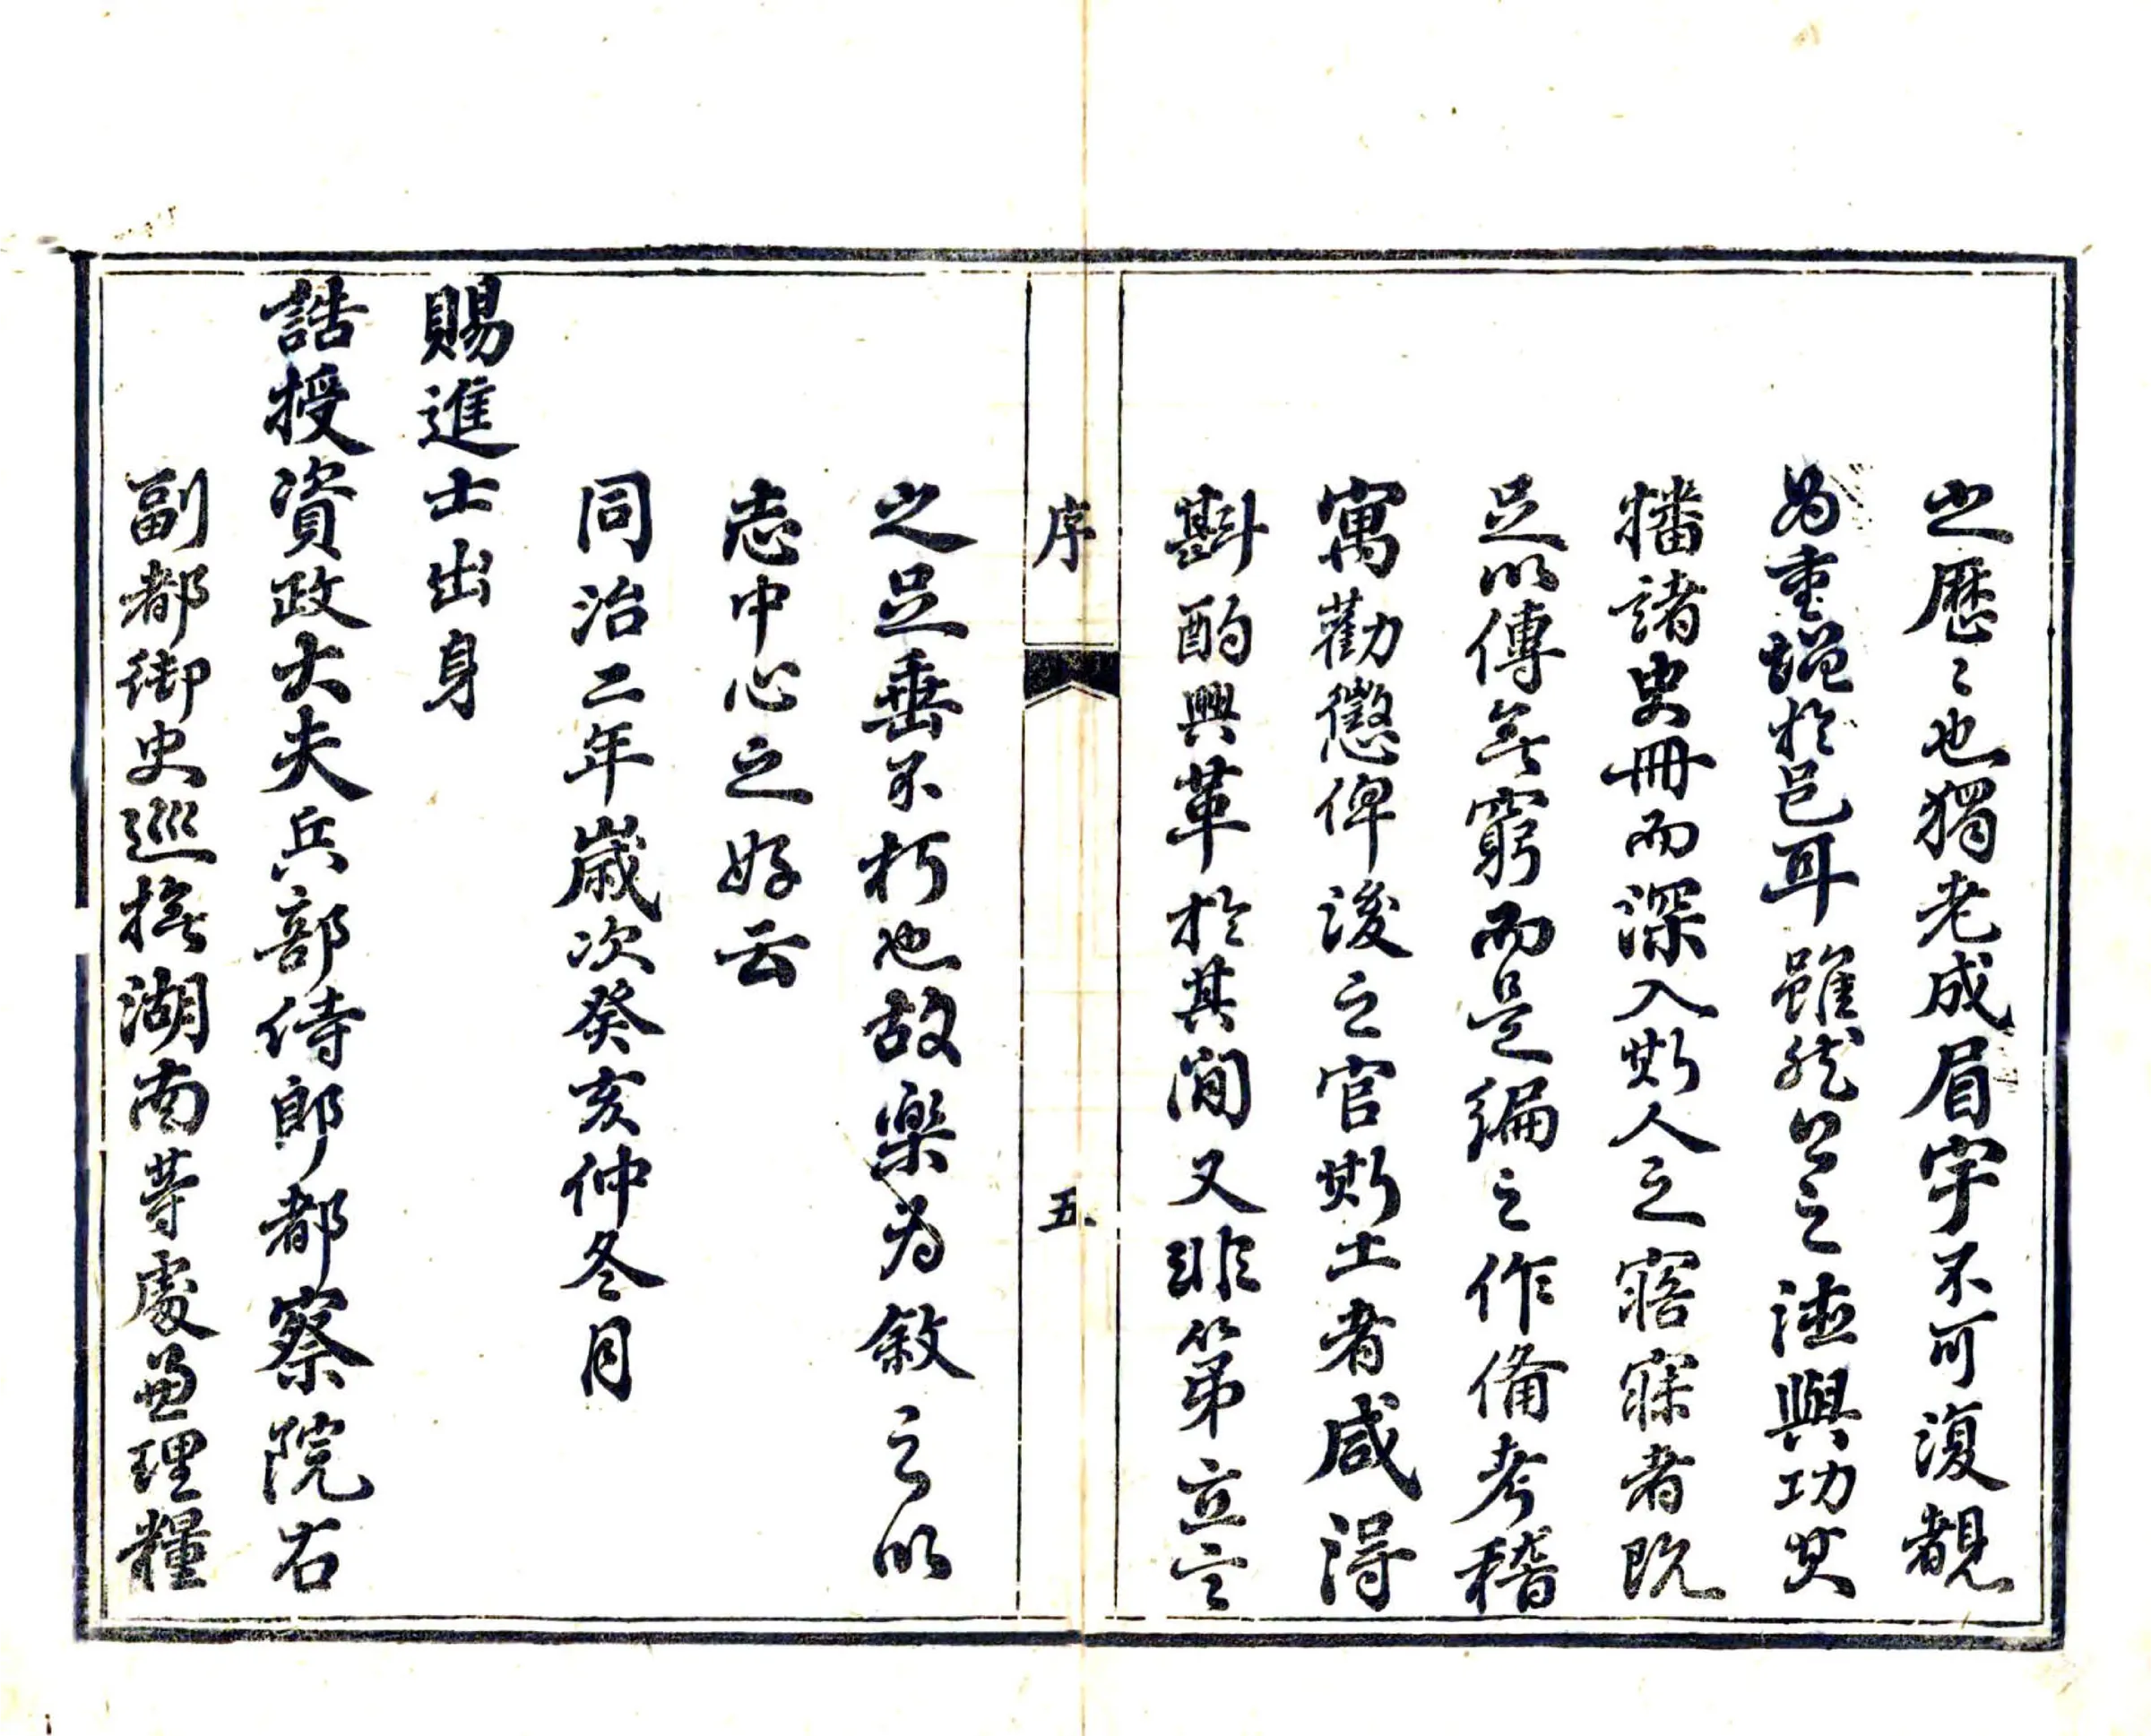 之歷〻也獨老成眉宇不可復覩
為重增於邑耳雖然公之德與功其
播諸史冊而深入斯人之寤寐者既
足以傳無窮而是編之作備考稽
寓勸懲俾後之官斯土者咸得
斟酌興革於其間又非第立言
序
五
之足垂不朽也故樂為敘之以
志中心之好云
同治二年歲次癸亥仲冬月
賜進士出身
誥授資政大夫兵部侍郎都察院右
副都御史巡撫湖南等處兼理糧